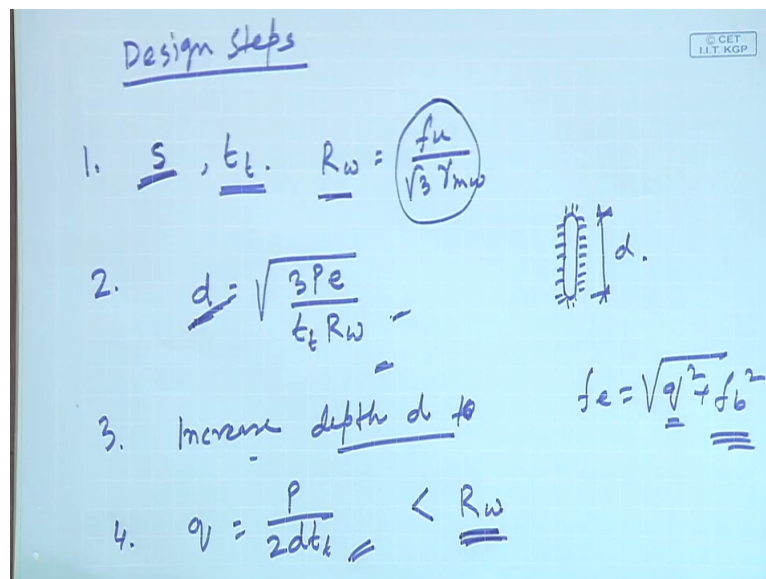 Design Steps
© CET
I.I.T. KGP
1. s, t_t. R_w = f_u / √3 γ_mw
2. d = √(3Pe / t_t R_w)
d.
f_e = √(q² + f_b²)
3. Increase depth d to
4. q = P / 2dt_t < R_w